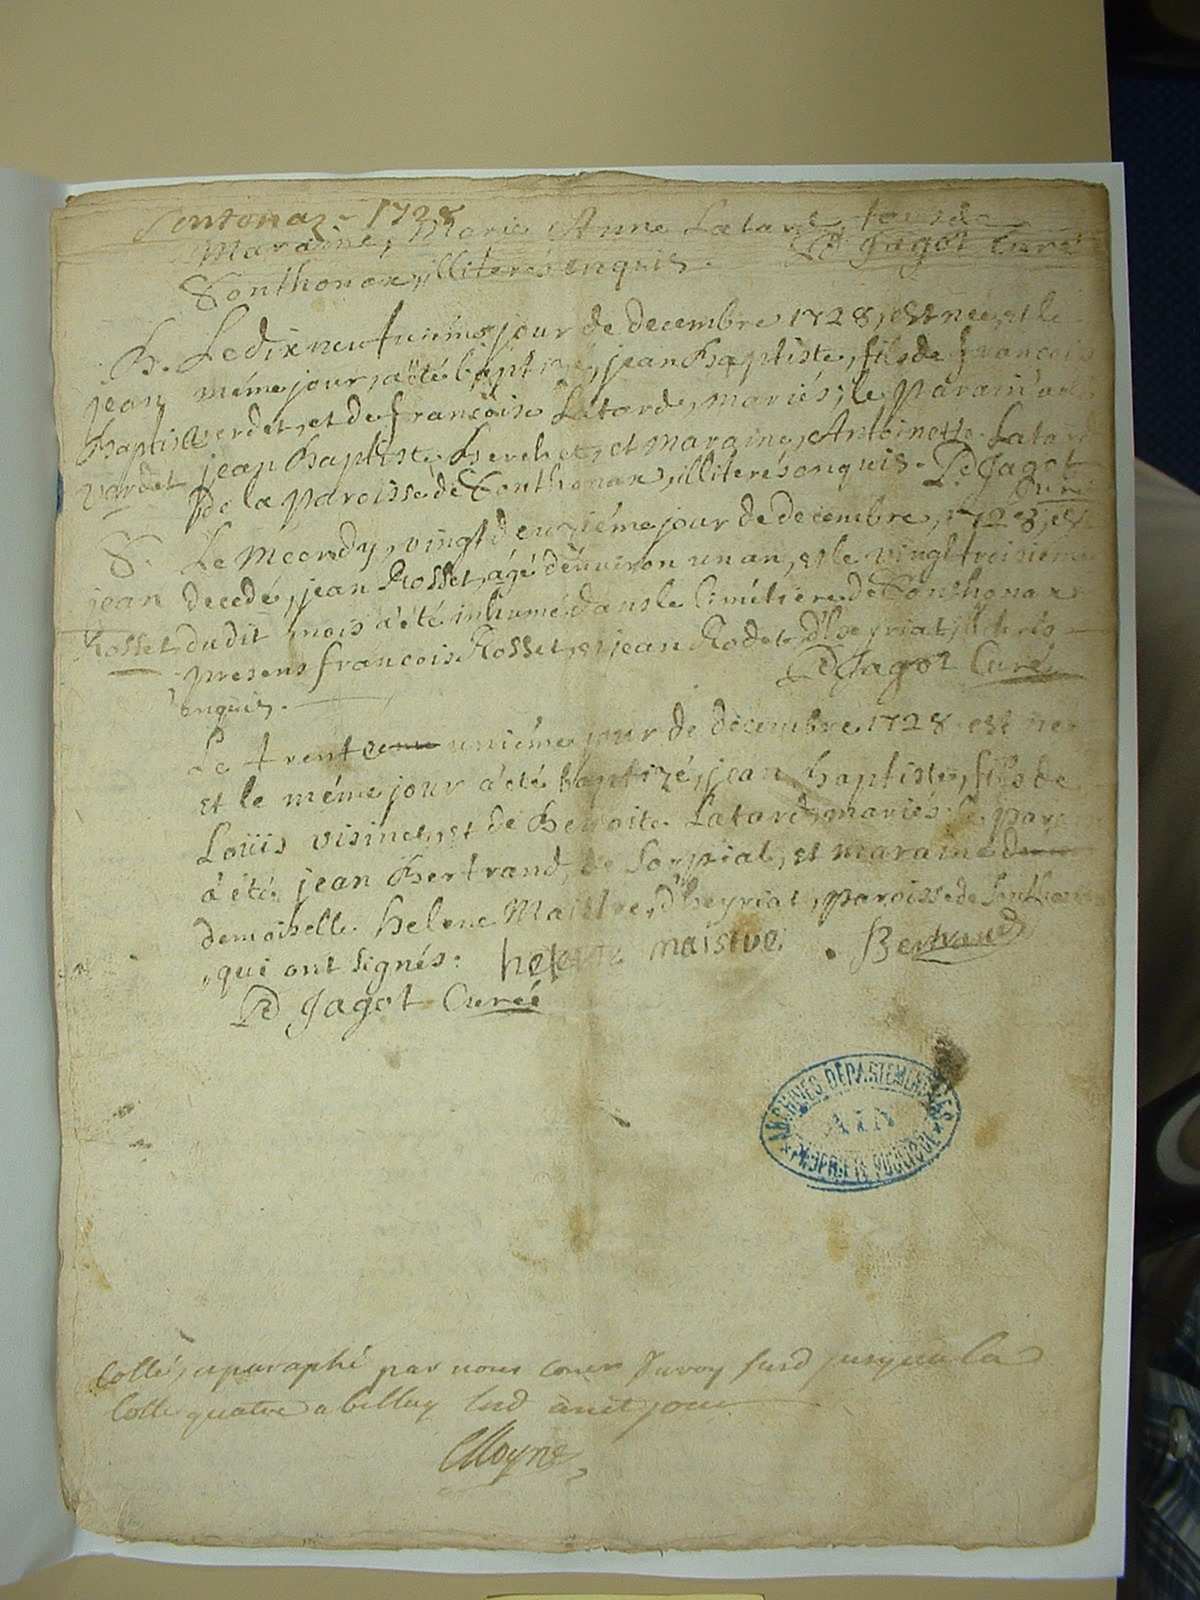 Sontonax - 1728
Maraine, Marie Anne Latard, tous de
Sonthonax, illiterés enquis. P Jagot Curé
B. Le dix neufvieme jour de decembre 1728, est neé, et le
jean même jour, a été baptizé, jean Baptiste, fils de francois
Baptiste verdet, et de francoise Latard, mariés, le Parain a
verdet jean Baptiste Berchet, et maraine, Antoinette Latard
de la paroisse de Sonthonax, illiterés enquis. P Jagot
Curé
S. Le Mecredy, vingt deuziéme jour de decembre, 1728, est
jean decedé, jean Rosset, agé d'environ un an, et le vingt troisieme
Rosset dudit mois a été inhumé dans le Cimétiere de Sonthonax
presens francois Rosset, et jean Rodet d'heyriat, illiterés
enquis. P Jagot Curé
Le trente unième jour de decembre 1728 est né
et le méme jour a été baptizé, jean baptiste, fils de
Loüis visinet, et de Benoite Latard, mariés le para
a été jean Bertrand, de Sorpiat, et maraine
demoiselle helene Maistre, d'heyriat, paroisse de Sonthonax
qui ont signés: helene maistre. Bertrand
P Jagot Curé
ARCHIVES DÉPARTEMENTALES
AIN
PROPRIÉTÉ PUBLIQUE
Cotté, eparaphé par nous jusqua la
Cotte quatre a belley